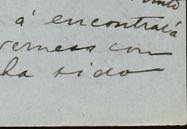 á encontrará
verness con
ha sido